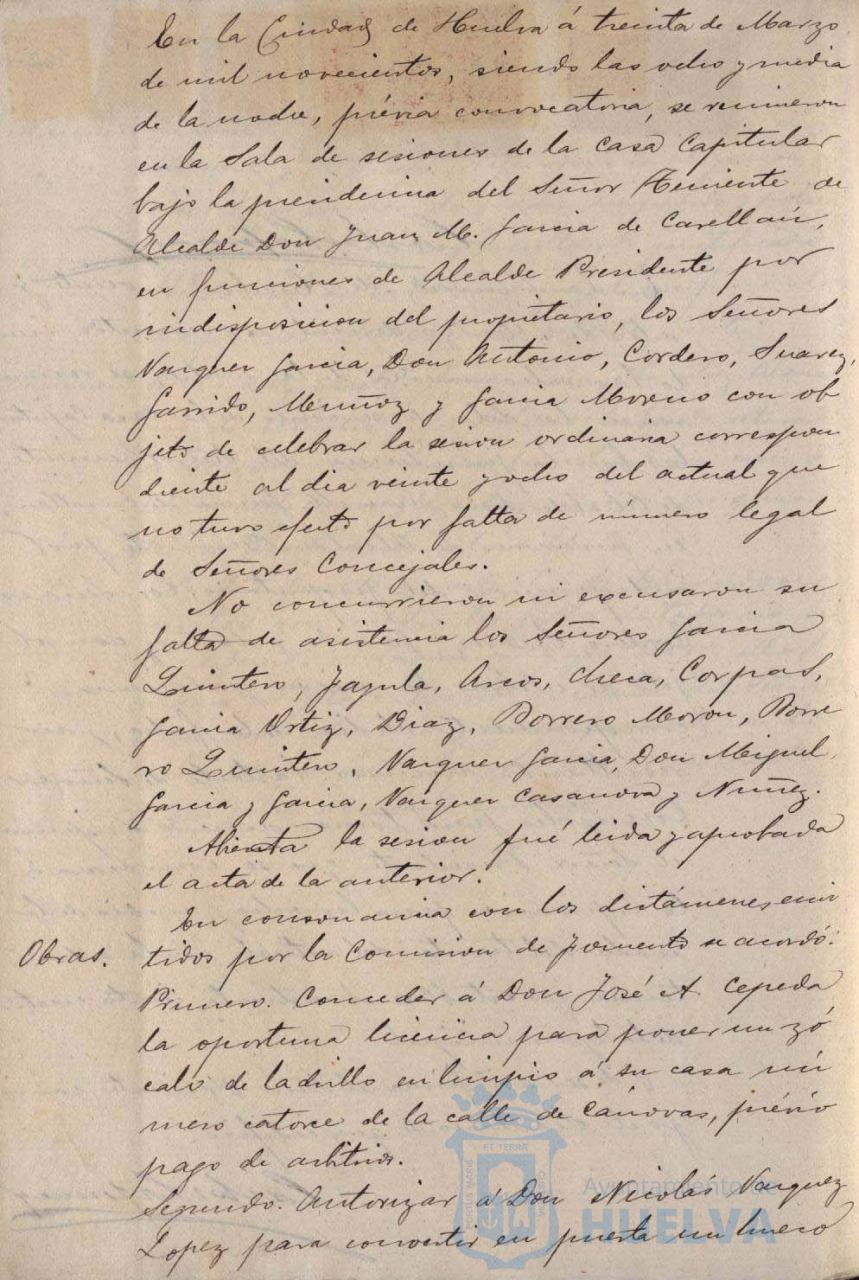 En la Ciudad de Huelva á treinta de Marzo
de mil novecientos, siendo las ocho y media
de la noche, prévia convocatoria, se reunieron
en la Sala de sesiones de la Casa Capitular
bajo la presidencia del Señor Teniente de
Alcalde Don Juan M. Garcia de
en funciones de Alcalde Presidente por
indisposicion del propietario, los Señores
Vazquez Garcia, Don Antonio, Cordero, Suarez,
Garrido, Muñoz y Garcia Moreno con ob
jeto de celebrar la sesion ordinaria correspon
diente al dia veinte y ocho del actual que
no tuvo efecto por falta de número legal
de Señores Concejales.
No concurrieron ni excusaron su
falta de asistencia los Señores Garcia
Quintero, Jazula, Arcos, Checa, Corpas,
Garcia Ortiz, Diaz, Borrero Moron, Borre
ro Quintero, Vazquez Garcia, Don Miguel,
Garcia y Garcia, Vazquez Casanova y Nuñez.
Abierta la sesion fué leida y aprobada
el acta de la anterior.
En consonancia con los dictámenes emi
Obras. tidos por la Comision de Fomento se acordó:
Primero. Conceder á Don José A. Cepeda
la oportuna licencia para poner un zó
calo de ladrillo en limpio á su casa nú
mero catorce de la calle de Cánovas, prévio
pago de arbitrios.
Segundo. Autorizar á Don Nicolás Vazquez
Lopez para convertir en puerta un hueco
Ayuntamiento de
HUELVA